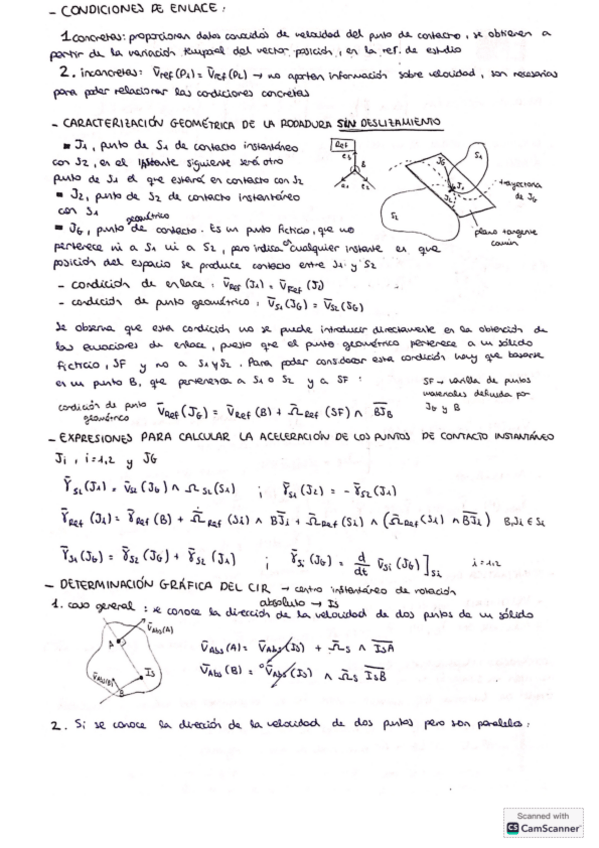 - CONDICIONES DE ENLACE:
1 concretas: proporcionan datos conocidos de velocidad del punto de contacto, se obtienen a
partir de la variación temporal del vector posición, en la ref. de estudio
2. inconcretas: v̄ref(P1) = v̄ref(P2) → no aportan información sobre velocidad, son necesarias
para poder relacionar las condiciones concretas
- CARACTERIZACIÓN GEOMÉTRICA DE LA RODADURA SIN DESLIZAMIENTO
▪ J1, punto de S1 de contacto instantáneo
con S2, en el instante siguiente será otro
punto de S1 el que estará en contacto con S2
▪ J2, punto de S2 de contacto instantáneo
con S1
▪ JG, punto geométrico de contacto. Es un punto ficticio, que no
pertenece ni a S1 ni a S2, pero indica en cualquier instante en que
posición del espacio se produce contacto entre S1 y S2
Ref
B
S1
S2
JG
J1
trayectoria
de JG
plano tangente
común
- condición de enlace: v̄Ref(J1) = v̄Ref(J2)
- condición de punto geométrico: v̄S1(JG) = v̄S2(JG)
Se observa que esta condición no se puede introducir directamente en la obtención de
las ecuaciones de enlace, puesto que el punto geométrico pertenece a un sólido
ficticio, SF y no a S1 y S2. Para poder considerar esta condición hay que basarse
en un punto B, que pertenezca a S1 o S2 y a SF:
SF → varilla de puntos
materiales definida por
JG y B
condición de punto
geométrico
v̄Ref(JG) = v̄Ref(B) + Ω̄Ref(SF) ∧ BJ̄B
- EXPRESIONES PARA CALCULAR LA ACELERACIÓN DE LOS PUNTOS DE CONTACTO INSTANTÁNEO
Ji, i=1,2 y JG
γ̄S2(J1) = v̄S2(JG) ∧ Ω̄S2(S1) ; γ̄S1(J2) = -γ̄S2(J1)
γ̄Ref(Ji) = γ̄Ref(B) + Ω̄̇Ref(Si) ∧ BJ̄i + Ω̄Ref(Si) ∧ (Ω̄Ref(Si) ∧ BJ̄i) B,Ji ∈ Si
γ̄S1(JG) = γ̄S2(JG) + γ̄S2(J1) ; γ̄Si(JG) = d/dt v̄Si(JG)]Si i=1,2
- DETERMINACIÓN GRÁFICA DEL CIR → centro instantáneo de rotación
absoluto → IS
1. caso general: se conoce la dirección de la velocidad de dos puntos de un sólido
v̄Abs(A)
A
IS
v̄Abs(B)
B
v̄Abs(A) = v̄Abs(IS) + Ω̄S ∧ ISA
v̄Abs(B) = v̄Abs(IS) ∧ Ω̄S ISB
2. Si se conoce la dirección de la velocidad de dos puntos pero son paralelas:
Scanned with
CS CamScanner